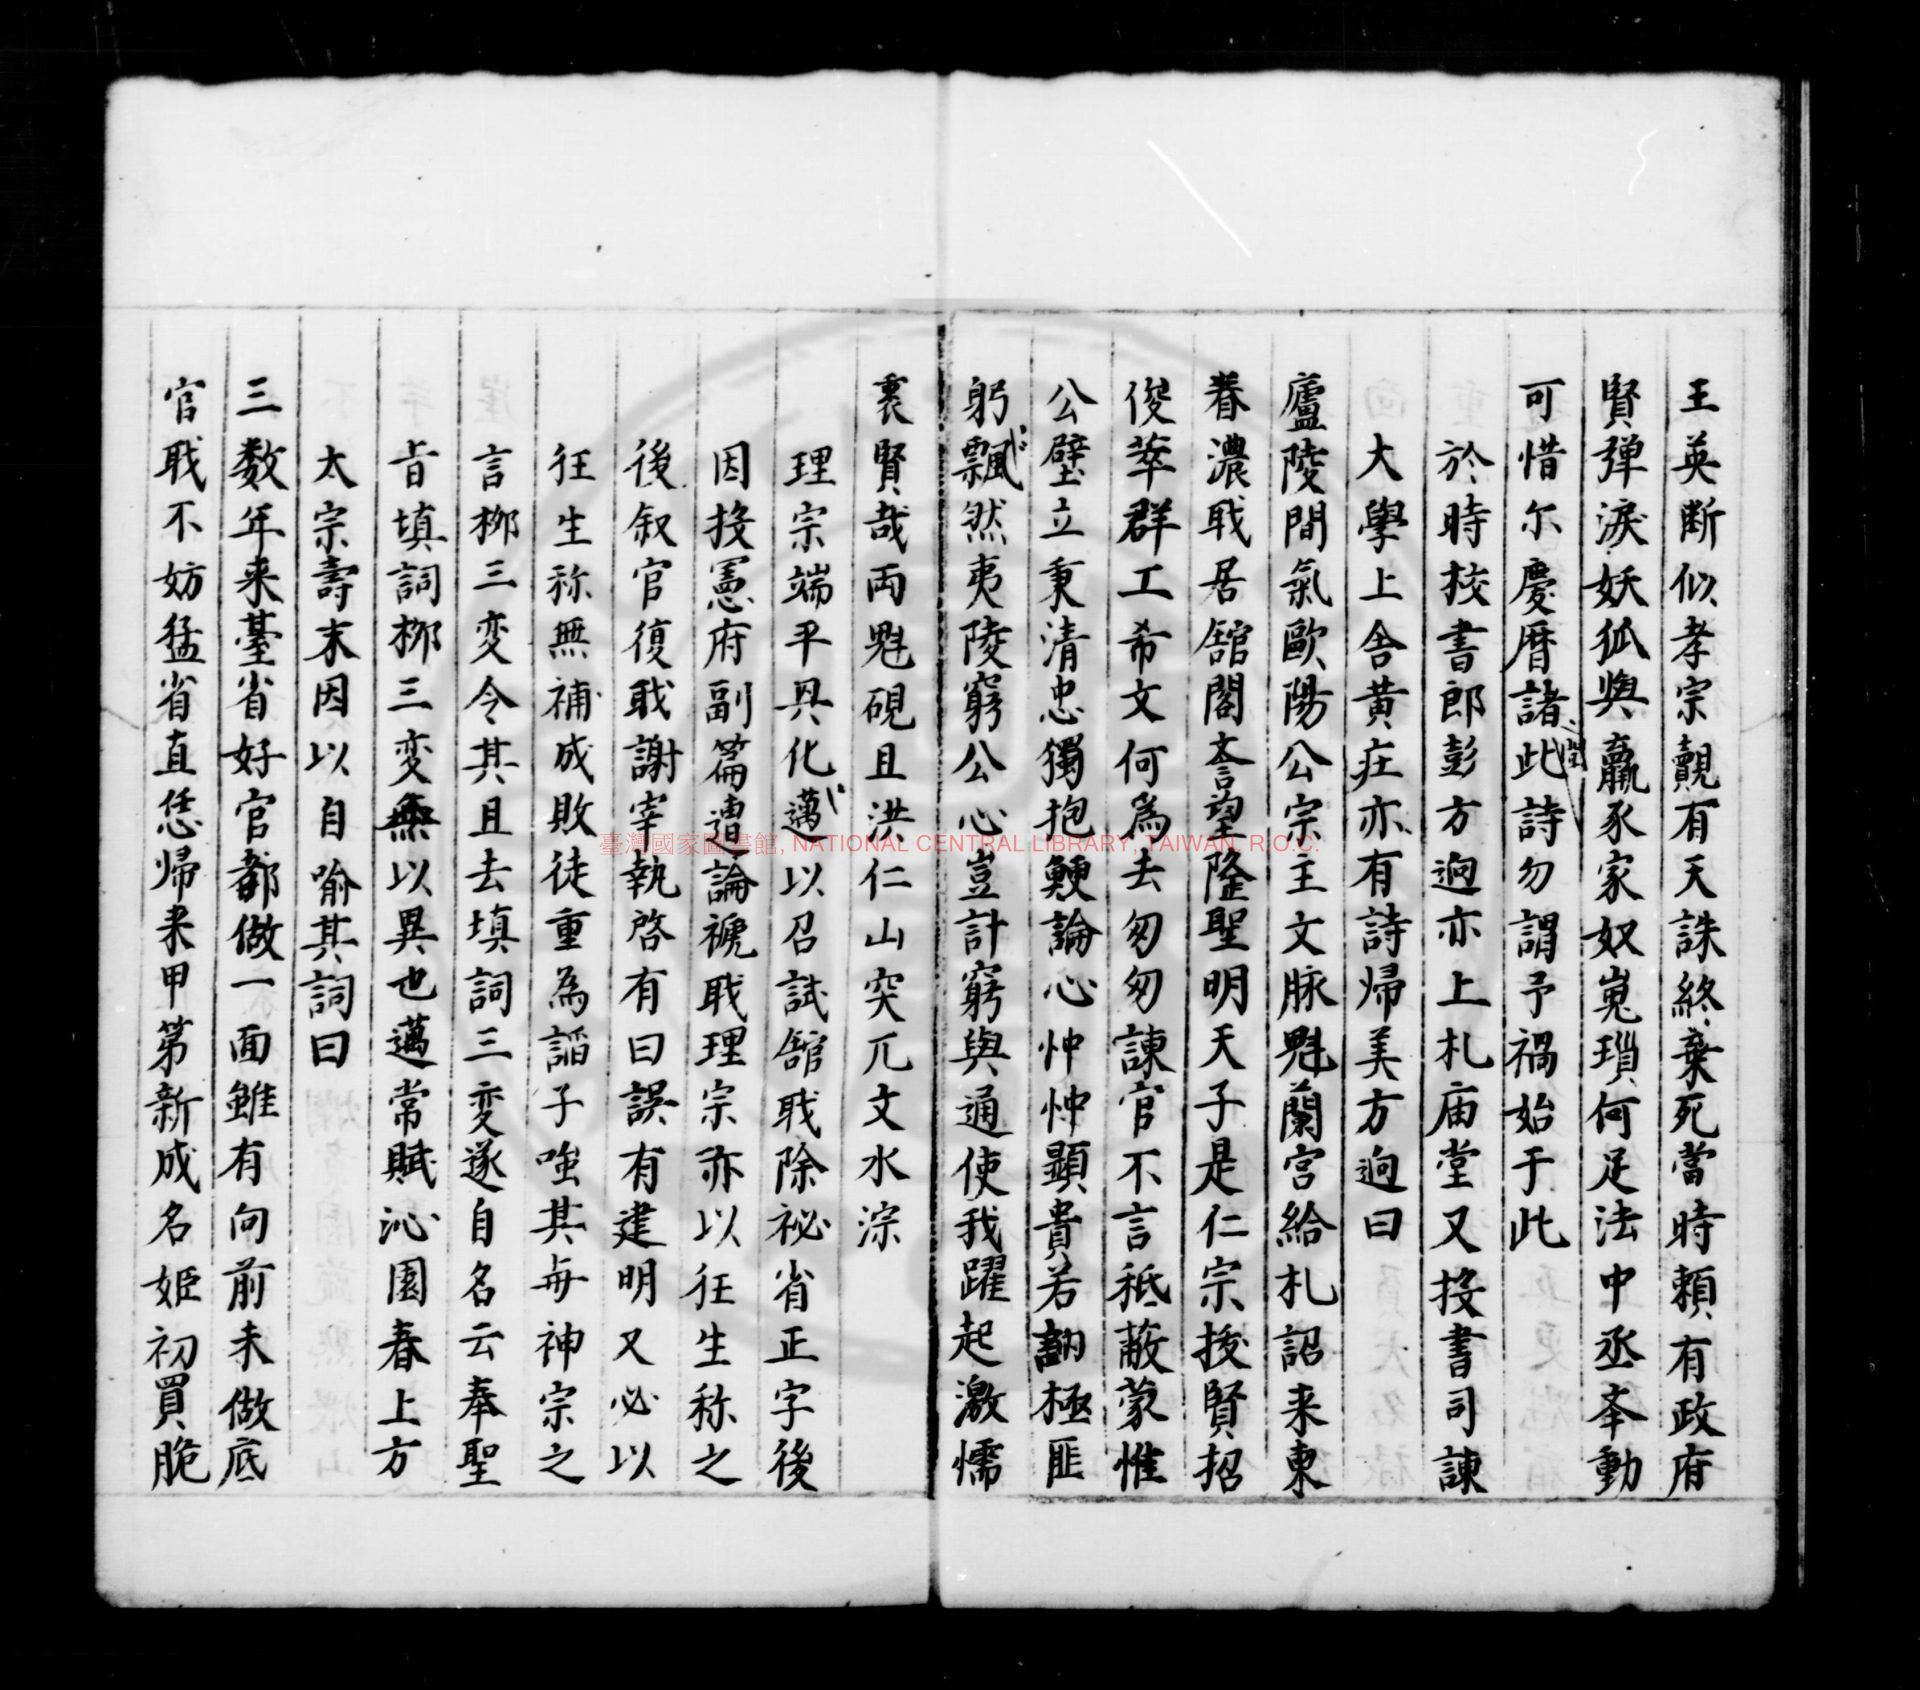 王英断似孝宗覿有天誅終棄死當時頼有政府
賢弹淚妖狐與羸豕家奴嵬瑣何足法中丞李動
可惜尔慶曆諸此詩勿謂予禍始于此
閏
於時校書郎彭方逈亦上札庙堂又投書司諫
大學上舍黄庄亦有詩帰美方逈曰
廬陵間氣歐陽公宗主文脉魁蘭宫給札詔来東
春濃戢居舘閣斎望隆聖明天子是仁宗授賢招
俊萃群工希文何為去匆匆諫官不言秪蔽蒙惟
公壁立秉清忠獨抱鯁論心忡忡顯貴若訥極匪
躬飄然夷陵窮公心豈計窮與通使我躍起激懦
衷賢哉兩魁硯且洪仁山突兀文水淙
理宗端平具化邁以召試舘戢除祕省正字後
因投憲府副篇遭論褫戢理宗亦以狂生称之
後叙官復戢謝宰執啓有曰誤有建明又必以
狂生称無補成敗徒重為謟子嗤其毎神宗之
言栁三变令其且去填詞三变遂自名云奉聖
旨填詞栁三变無以異也邁常賦沁園春上方
太宗壽末因以自喻其詞曰
三数年来臺省好官都做一面雖有向前未做底
官戢不妨猛省直恁帰来甲第新成名姬初買脆
臺灣國家圖書館, NATIONAL CENTRAL LIBRARY, TAIWAN, R.O.C.